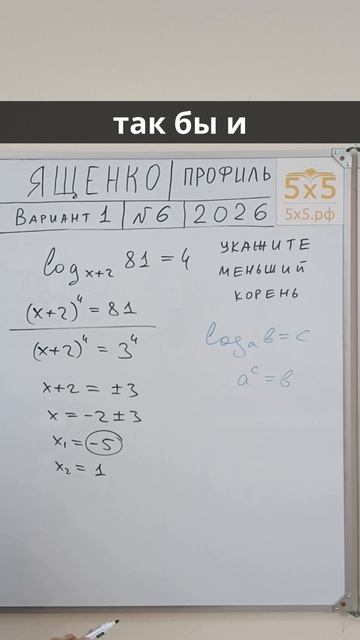 так бы и
ЯЩЕНКО | ПРОФИЛЬ
ВАРИАНТ 1 | №6 | 2026
5х5
5х5.рф
log_{x+2} 81 = 4
УКАЖИТЕ
МЕНЬШИЙ
КОРЕНЬ
(x+2)^4 = 81
(x+2)^4 = 3^4
log_a b = c
a^c = b
x+2 = ±3
x = -2 ± 3
x₁ = -5
x₂ = 1